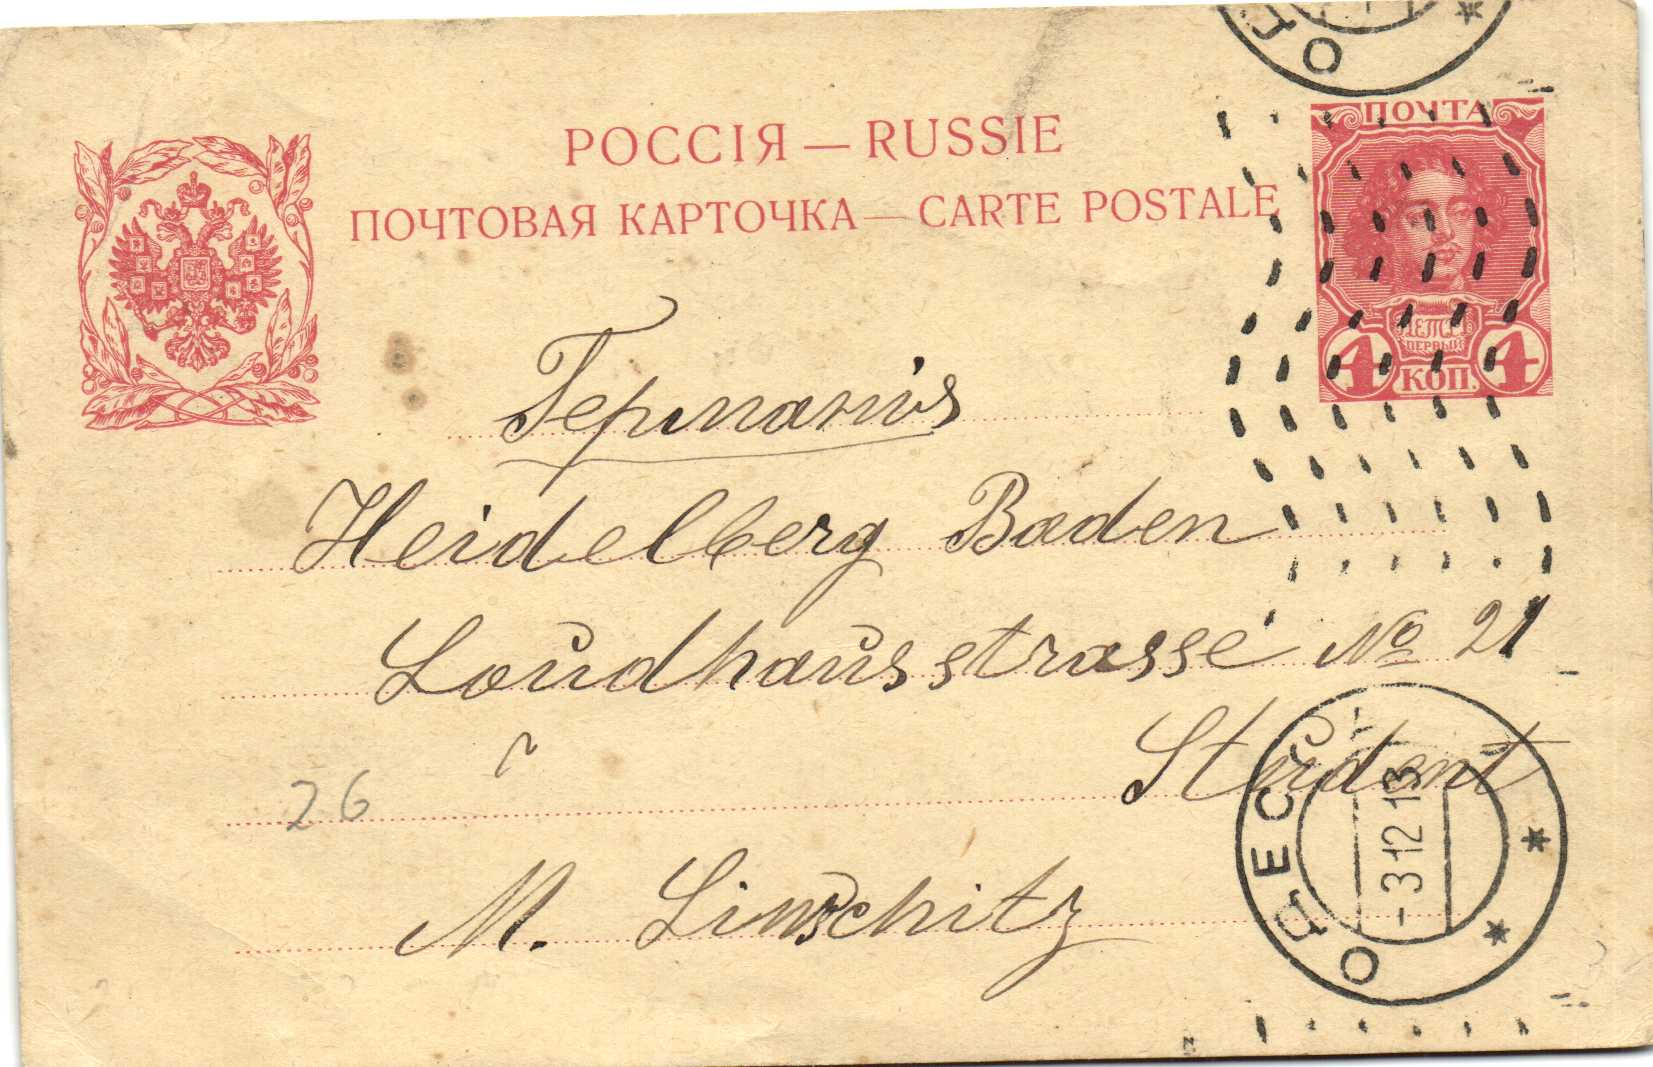 РОССІЯ — RUSSIE
ПОЧТОВАЯ КАРТОЧКА — CARTE POSTALE
ПОЧТА
ПЕТРЪ
ПЕРВЫЙ
4 КОП. 4
Германия
Heidelberg Baden
Loudhausstrasse № 21
Student
26
M. Linschitz
ОДЕСС
-3 12 13